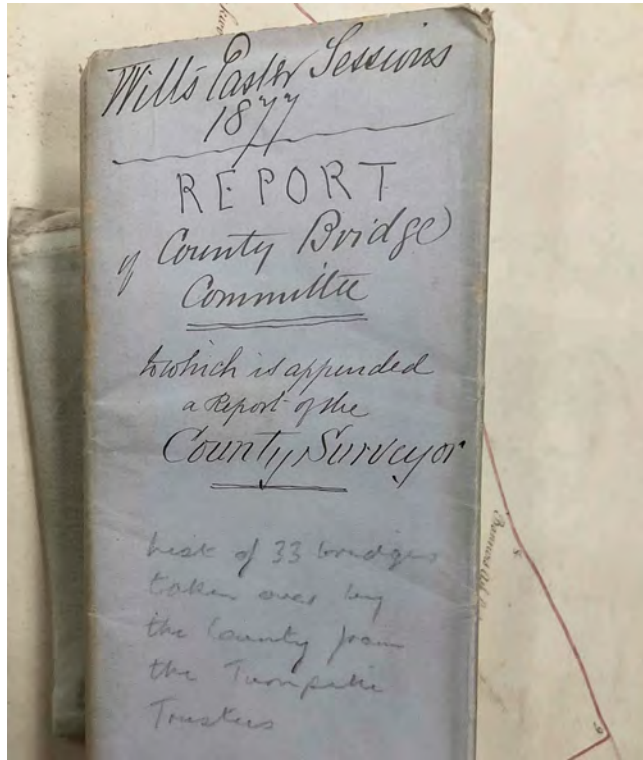 Wilts Easter Sessions
1877
REPORT
of County Bridge
Committee
to which is appended
a Report of the
County Surveyor
List of 33 bridges
taken over by
the County from
the Turnpike
Trustees